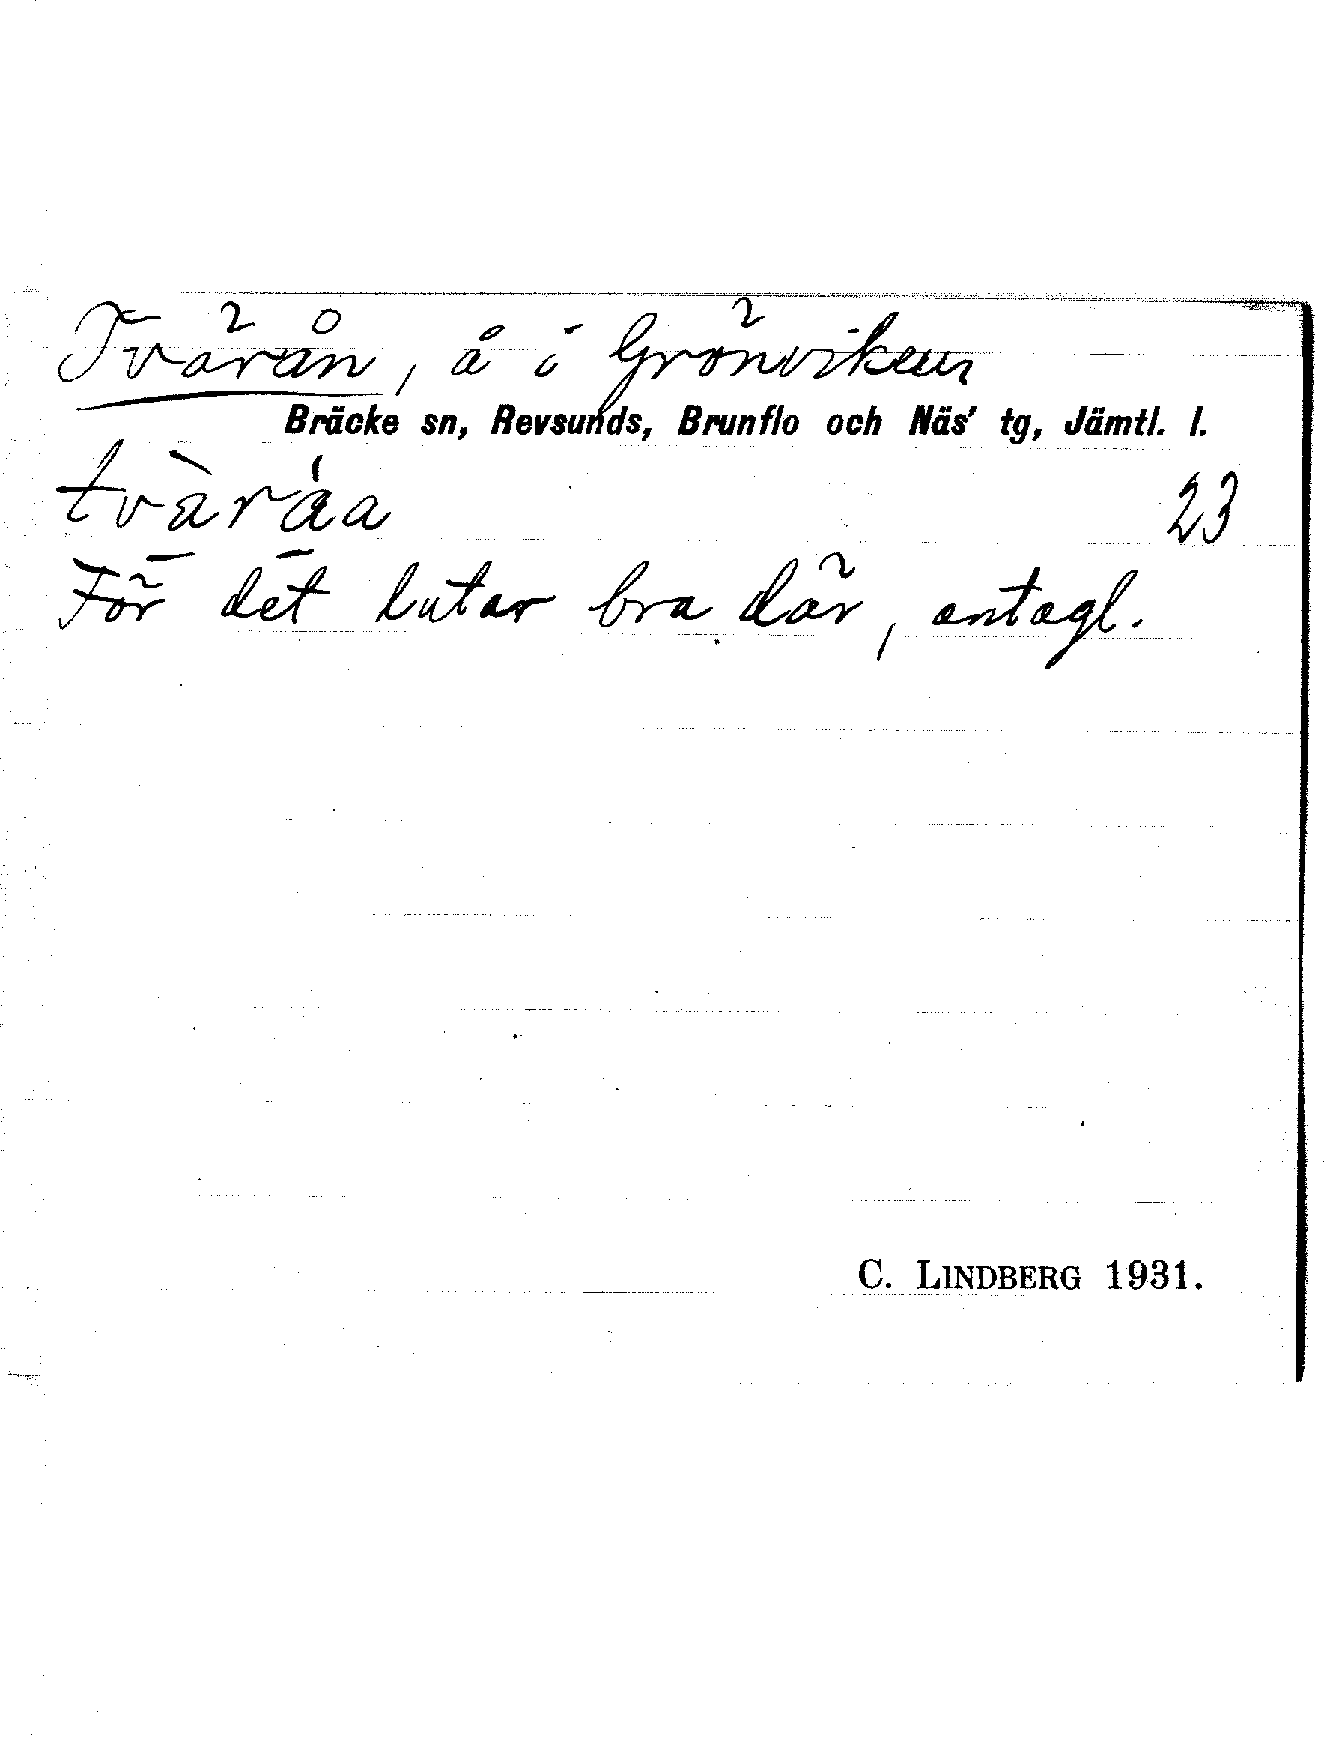 Tvärån, å i Grönviken
Bräcke sn, Revsunds, Brunflo och Näs' tg, Jämtl. l.
tvàráa 23
För det lutar bra där, antagl.
C. LINDBERG 1931.